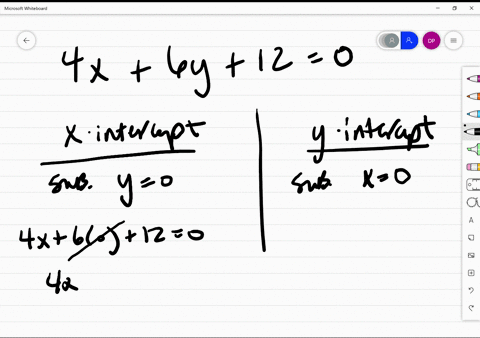 Microsoft Whiteboard
DP
4x + 6y + 12 = 0
x-intercept
sub. y = 0
4x + 6(0) + 12 = 0
4x
y-intercept
sub. x = 0